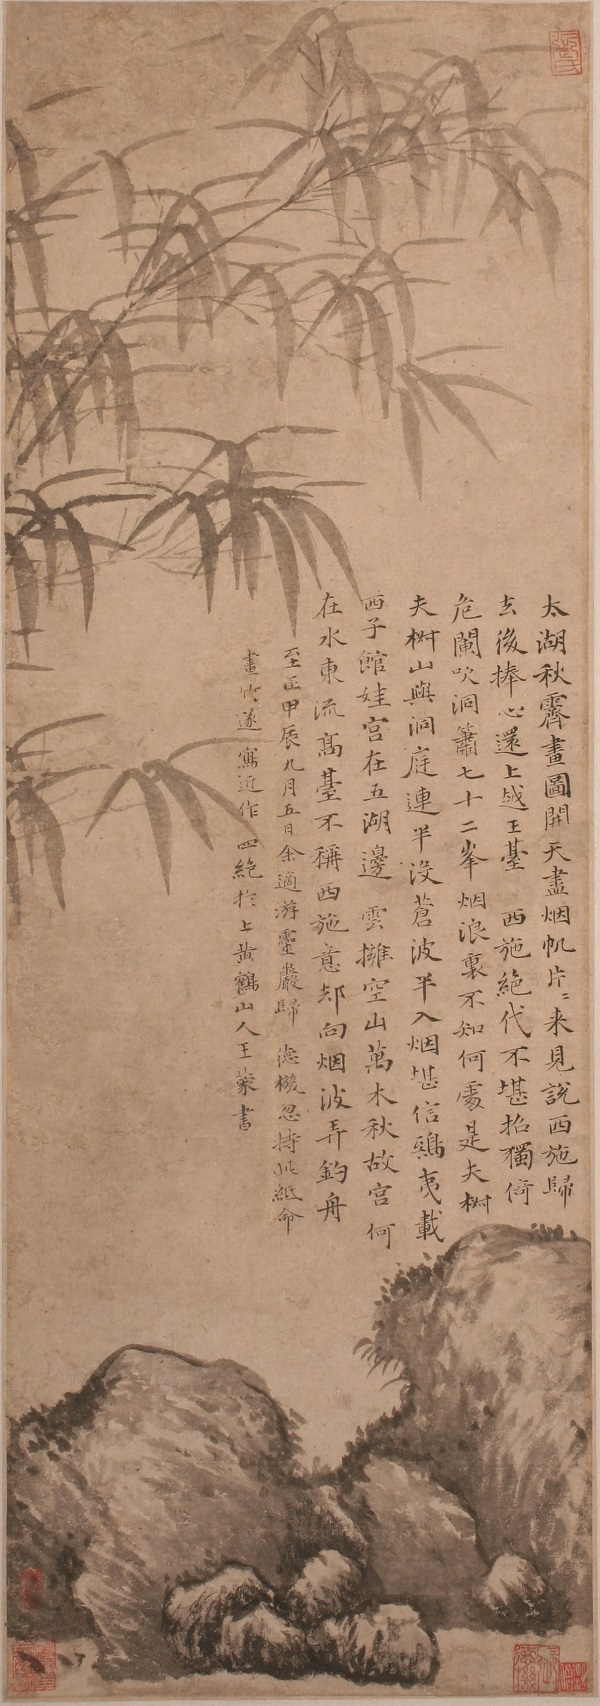 太湖秋霽畫圖開天盡烟帆片〻来見說西施歸
去後捧心還上越王臺 西施絕代不堪招獨倚
危闌吹洞簫七十二峯烟浪裏不知何處是夫椒
夫椒山與洞庭連半没蒼波半入烟堪信鴟夷載
西子館娃宮在五湖邊 雲擁空山萬木秋故宮何
在水東流高臺不稱西施意却向烟波弄釣舟
至正甲辰九月五日余適游靈巖歸 德機忽持此紙命
畫竹遂寫近作四絶扵上黄鶴山人王蒙書